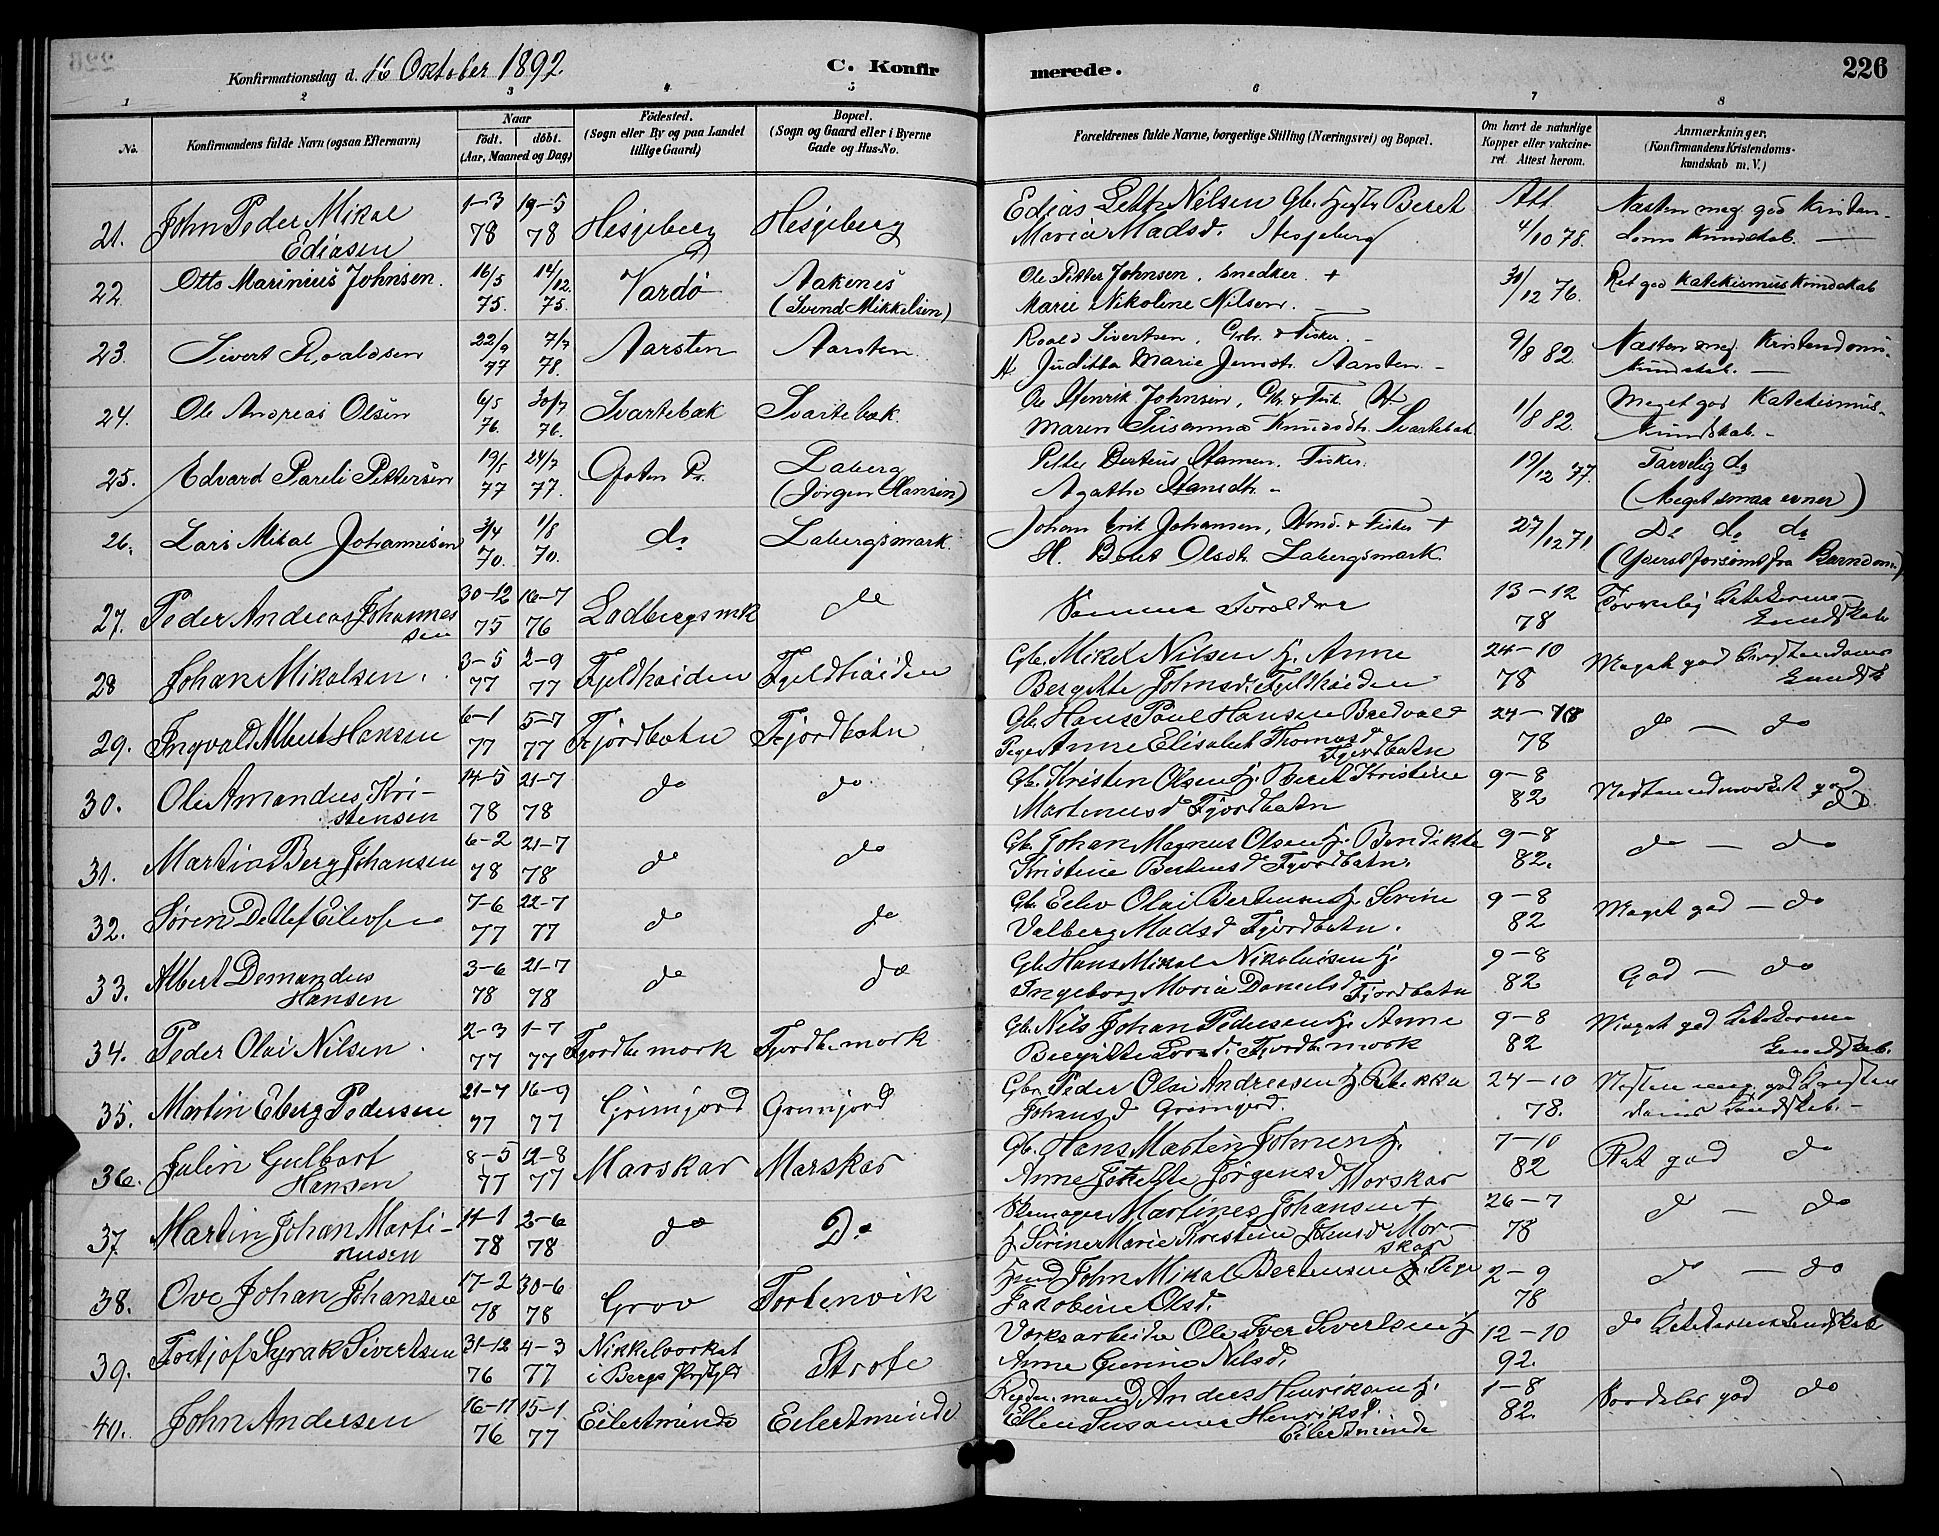 Konfirmationsdag d. 16 Oktober 1892
C. Konfir
merede.
226
1 2 3 4 5 6 7 8
No.
Konfirmandens fulde Navn (ogsaa Efternavn)
Naar
födt. döbt.
(Aar, Maaned og Dag)
Födested.
(Sogn eller By og paa Landet
tillige Gaard)
Bopæl.
(Sogn og Gaard eller i Byerne
Gade og Hus-No.
Forældrenes fulde Navne, borgerlige Stilling (Næringsvei) og Bopæl.
Om havt de naturlige
Kopper eller vakcine-
ret. Attest herom.
Anmærkninger,
(Konfirmandens Kristendoms-
kundskab m. V.)
21. John Peder Mikal 1-3 19-5 Hesjeberg Hesjeberg Edias Nilsen Gbr. Beret Att. Næsten meg god Kristen-
Ediasen 78 78 Maria Madsd. Hesjeberg 4/10 78. doms Kundskab. —
22. Otto Marinius Johnsen. 16/5 14/12. Vardö Aakenes Ole Petter Johnsen, Snedker. + 31/12 76. Ret god Katekismuskundskab
75. 75. (Svend Mikkelsen) Marie Nikoline Nilsen. —
23. Sivert Roaldsen 22/9 7/7 Aarsten Aarsten. Roald Sivertsen, Gbr. & Fisker. 9/8 82. Næsten meg. Kristendoms-
77 78. H. Juditha Marie Jensdtr. Aarsten. - kundskab. —
24. Ole Andreas Olsen 6/5 30/7 Svartebæk Svartebæk. Ole Henrik Johnsen, Gbr. & Fisk. H. 1/8 82. Meget god Katekismus-
76. 76. Maren Susanna Knudsdtr. Svartebæk kundskab. -
25. Edvard Pareli Pettersen 19/5 24/7 Ofoten Pr. Laberg Petter Bertius Hansen. Fisker. 19/12 77. Tarvelig do
77 77. (Jörgen Hansen) Agathe Hansdtr. - (Meget smaa evner)
26. Lars Mikal Johannesen 3/4 1/8 do Labergsmark. Johan Erik Johansen, Hmd. & Fisker + 27/12 71. Do do do
70. 70. H. Beret Olsdtr. Labergsmark. (Yderst forsömt fra Barndom.)
27. Peder Andreas Johannes 30-12 16-7 Ladbergsmk do Samme Foreldre 13-12 Tarvelig
sen 75 76 78 Kundskab
28 Johan Mikalsen. 3-5 2-9 Fjeldhøiden Fjeldhøiden Gbr. Mikal Nilsen H. Anne 24-10 Meget god Kristendoms
77 77 Bergitte Johnsd. Fjeldhøiden 78 Kundsk
29. Ingvald Albert Hansen 6-1 5-7 Fjordbotn Fjordbotn Gb. Hans Paul Hansen Bredvold 24-10 do — do
77 77 Pige Anne Elisabet Thomasd 78
Fjordbotn
30. Ole Amandus Kri- 14-5 21-7 do do Gb. Kristen Olsen H. Beret Kristine 9-8
stensen 78 78 Martinusd Fjordbotn 82 do
31. Martin Berg Johansen 6-2 21-7 do do Gb. Johan Magnus Olsen H. Bendikte 9-8 do — do
78 78 Kristine Bertensd Fjordbotn. 82.
32. Søren Detlef Eilevsen 7-6 22-7 do do Gb. Eilev Olai Bertensen H. Serine 9-8 Meget god — do
77 77 Valberg Madsd Fjordbotn. 82
33. Albert Demandus 3-6 21-7 do do Gb. Hans Mikal Nikolaisen H. 9-8 God — do
Hansen 78 78 Ingeborg Maria Danielsd Fjordbotn 82
34. Peder Olai Nilsen. 2-3 1-7 Fjordb. mark Fjordb. mark Gb. Nils Johan Pedersen H. Anne 9-8 Meget god
77 77 Bergitte Fjordb. mark 82 Kundskab.
35. Martin Eberg Pedersen 21-7 16-9 Grimjord Grimjord Gbr. Peder Olai Andreasen H. Rebekka 24-10 Nesten meg. god Kristen
77 77 Johansd Grimjord. 78. doms Kundskab. -
36. Julin Gulbart 8-5 12-8 Marskar Marskar Gb. Hans Martin Johnsen H. 7-10 Ret god do
Hansen 77 77 Anne Jörgensd Morskar 82
37. Martin Johan Marti- 14-1 2-6 do Do Martines Johansen + 26-7 do — do
nusen 78 78. H. Serine Marie Kristine Johnsd Mor- 78
skar
38. Ove Johan Johansen 17-2 30-6 Grov Forbenvik John Mikal Bertensen Pige 2-9 do — do
78 78 Jakobine Olsd. 78
39. Fortjof Syrak Sivertsen 31-12 4-3 Nikkelværket Strofe Værksarbeider Ole Iver Sivertsen H 12-10 do Kundskab
76 77 i Bergs Prgjld Anne Nilsd. 92.
40. John Andersen 16-11 15-1 Eilertminde Eilertminde mand Anders Henriksen H. 1-8 god do
76 77 Ellen Susanne Henriksd. 82.
Eilertminde